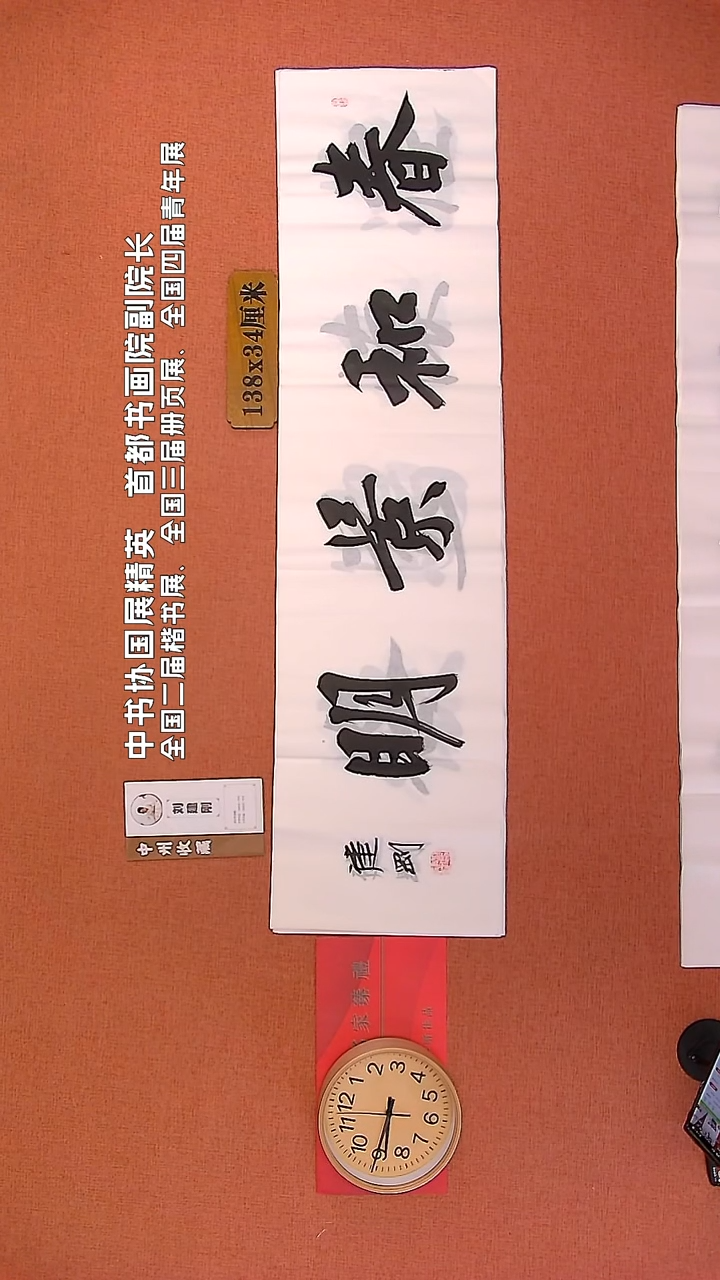 中书协国展精英 首都书画院副院长
全国二届楷书展、全国三届册页展、全国四届青年展
138x34厘米
刘建刚
中州收藏
春和景明
建剛
12
1
2
3
4
5
6
7
8
9
10
11